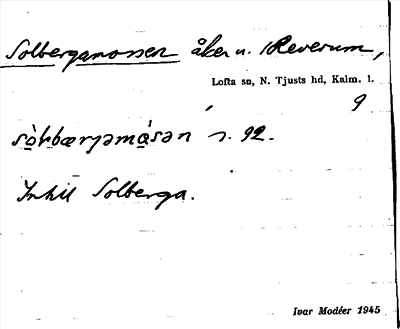 Solbergamossen åker u. Reverum,
Lofta sn, N. Tjusts hd, Kalm. l.
9
s. 92.
Inkil Solberga.
Ivar Modéer 1945